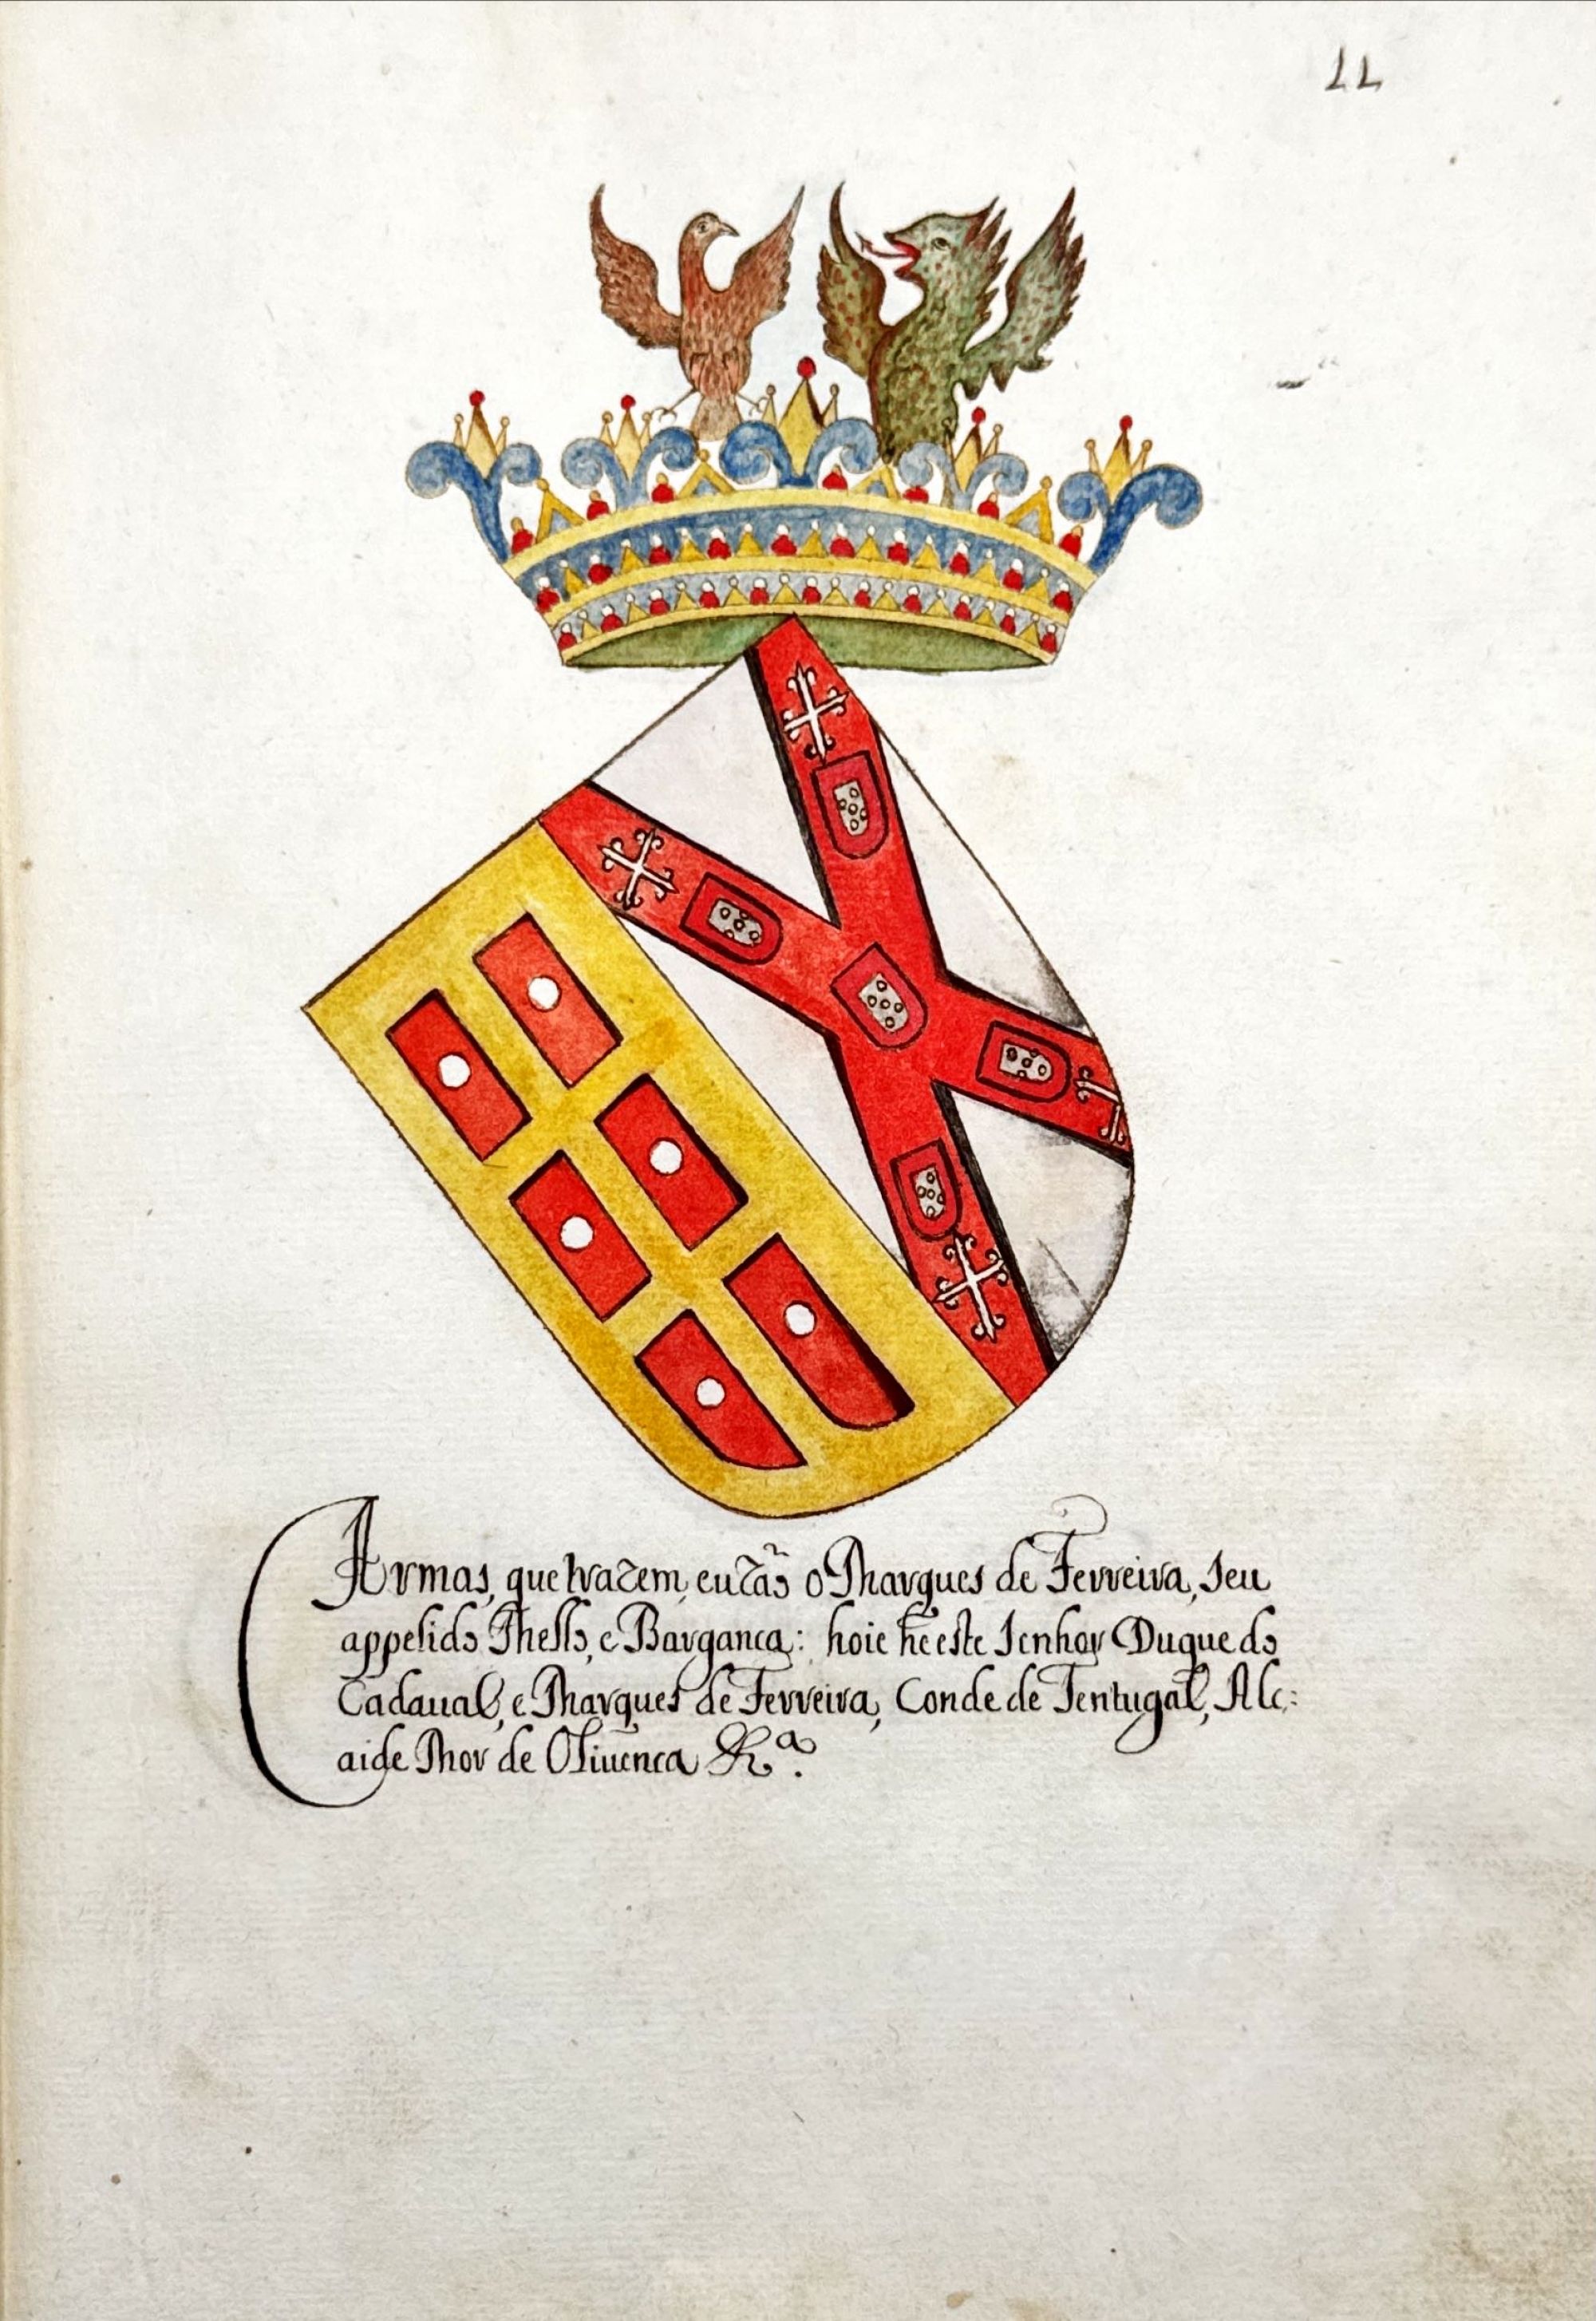 11
Armas, que trazem, eu zão o Marques de Ferreira, seu
appelido Mello, e Barganca: hoie he este Senhor Duque do
Cadaual, e Marques de Ferreira, Conde de Tentugal, Alc:
aide Mor de Oliuenca &ª.